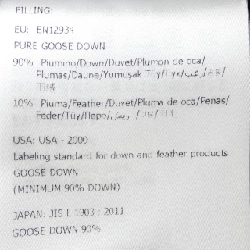 FILLING:
EU: EN12934
PURE GOOSE DOWN
90% Piumino/Down/Duvet/Plumon de oca/
Plumas/Daune/Yumuşak Tüy/
10% Piuma/Feather/Duvet/Pluma de oca/Penas/
Feder/Tüy/Перо/
USA: USA - 2000
Labeling standard for down and feather products
GOOSE DOWN
(MINIMUM 90% DOWN)
JAPAN: JIS L 1903 : 2011
GOOSE DOWN 90%